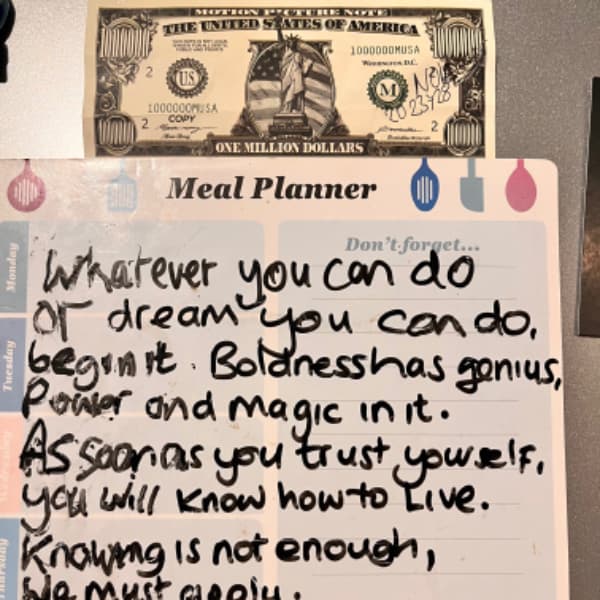 MOTION PICTURE NOTE
THE UNITED STATES OF AMERICA
1000000
1000000
1000000MUSA
WASHINGTON, D.C.
2
US
M
1000000MUSA
COPY
2
2
ONE MILLION DOLLARS
Meal Planner
Don't forget...
Monday
Tuesday
Whatever you can do
or dream you can do,
begin it. Boldness has genius,
Power and magic in it.
As soon as you trust yourself,
you will know how to Live.
Knowing is not enough,
We must apply.